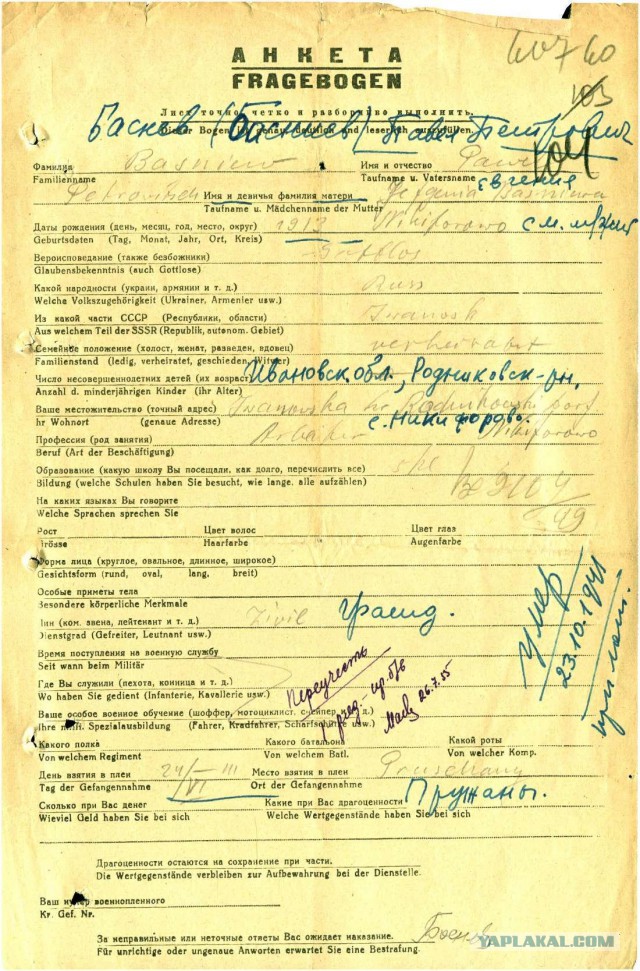 60760
АНКЕТА
FRAGEBOGEN
103
104
Лист точно четко и разборчиво выполнить.
Dieser Bogen ist genau deutlich und leserlich auszufüllen.
Баснев (Басниев) Павел Петрович
Фамилия Basniew Имя и отчество Pawel
Familienname Taufname u. Vatersname
Евгения
Petrowitsch Имя и девичья фамилия матери Jefgenia Basniewa
Taufname u. Mädchenname der Mutter
Даты рождения (день, месяц, год, место, округ) 1913 Nikiforowo
Geburtsdaten (Tag, Monat, Jahr, Ort, Kreis)
Вероисповедание (также безбожники) Gottlos
Glaubensbekenntnis (auch Gottlose)
Какой народности (украин, армянин и т. д.) Russ
Welcha Volkszugehörigkeit (Ukrainer, Armenier usw.)
Из какой части СССР (Республики, области) Iwanosk
Aus welchem Teil der SSSR (Republik, autonom. Gebiet)
Семейное положение (холост, женат, разведен, вдовец) verheiratet
Familienstand (ledig, verheiratet, geschieden, Witwer)
Число несовершеннолетних детей (их возраст)
Ивановск. обл., Родниковск. р-н,
Anzahl d. minderjährigen Kinder (ihr Alter)
Ваше местожительство (точный адрес) Iwanowska
с. Никифорово.
hr Wohnort (genaue Adresse)
Nikiforowo
Профессия (род занятия) Arbeiter
Beruf (Art der Beschäftigung)
Образование (какую школу Вы посещали, как долго, перечислить все)
Bildung (welche Schulen haben Sie besucht, wie lange. alle aufzählen)
На каких языках Вы говорите
Welche Sprachen sprechen Sie
Рост Цвет волос Цвет глаз
Grösse Haarfarbe Augenfarbe
Форма лица (круглое, овальное, длинное, широкое)
Gesichtsform (rund, oval, lang, breit)
Особые приметы тела
Besondere körperliche Merkmale
Чин (ком. звена, лейтенант и т. д.) Zivil Гражд.
Dienstgrad (Gefreiter, Leutnant usw.)
умер
23.10.1941
Время поступления на военную службу
Seit wann beim Militär
Где Вы служили (пехота, конница и т. д.)
Wo haben Sie gedient (Infanterie, Kavallerie usw.)
Переучесть
26.7.55
Ваше особое военное обучение (шоффер, мотоциклист, снайпер и т. д.)
Ihre milit. Spezialausbildung (Fahrer, Kradfahrer, Scharfschütze usw.)
Какого полка Какого баталиона Какой роты
Von welchem Regiment Von welchem Batl. Von welcher Komp.
День взятия в плен Место взятия в плен Pruschany
Tag der Gefangennahme Ort der Gefangennahme
Пружаны.
Сколько при Вас денег Какие при Вас драгоценности
Wieviel Geld haben Sie bei sich Welche Wertgegenstände haben Sie bei sich
Драгоценности остаются на сохранение при части.
Die Wertgegenstände verbleiben zur Aufbewahrung bei der Dienstelle.
Ваш нумер военнопленного
Kr. Gef. Nr.
За неправильные или неточные ответы Вас ожидает наказание.
Für unrichtige oder ungenaue Anworten erwartet Sie eine Bestrafung.
YAPLAKAL.COM